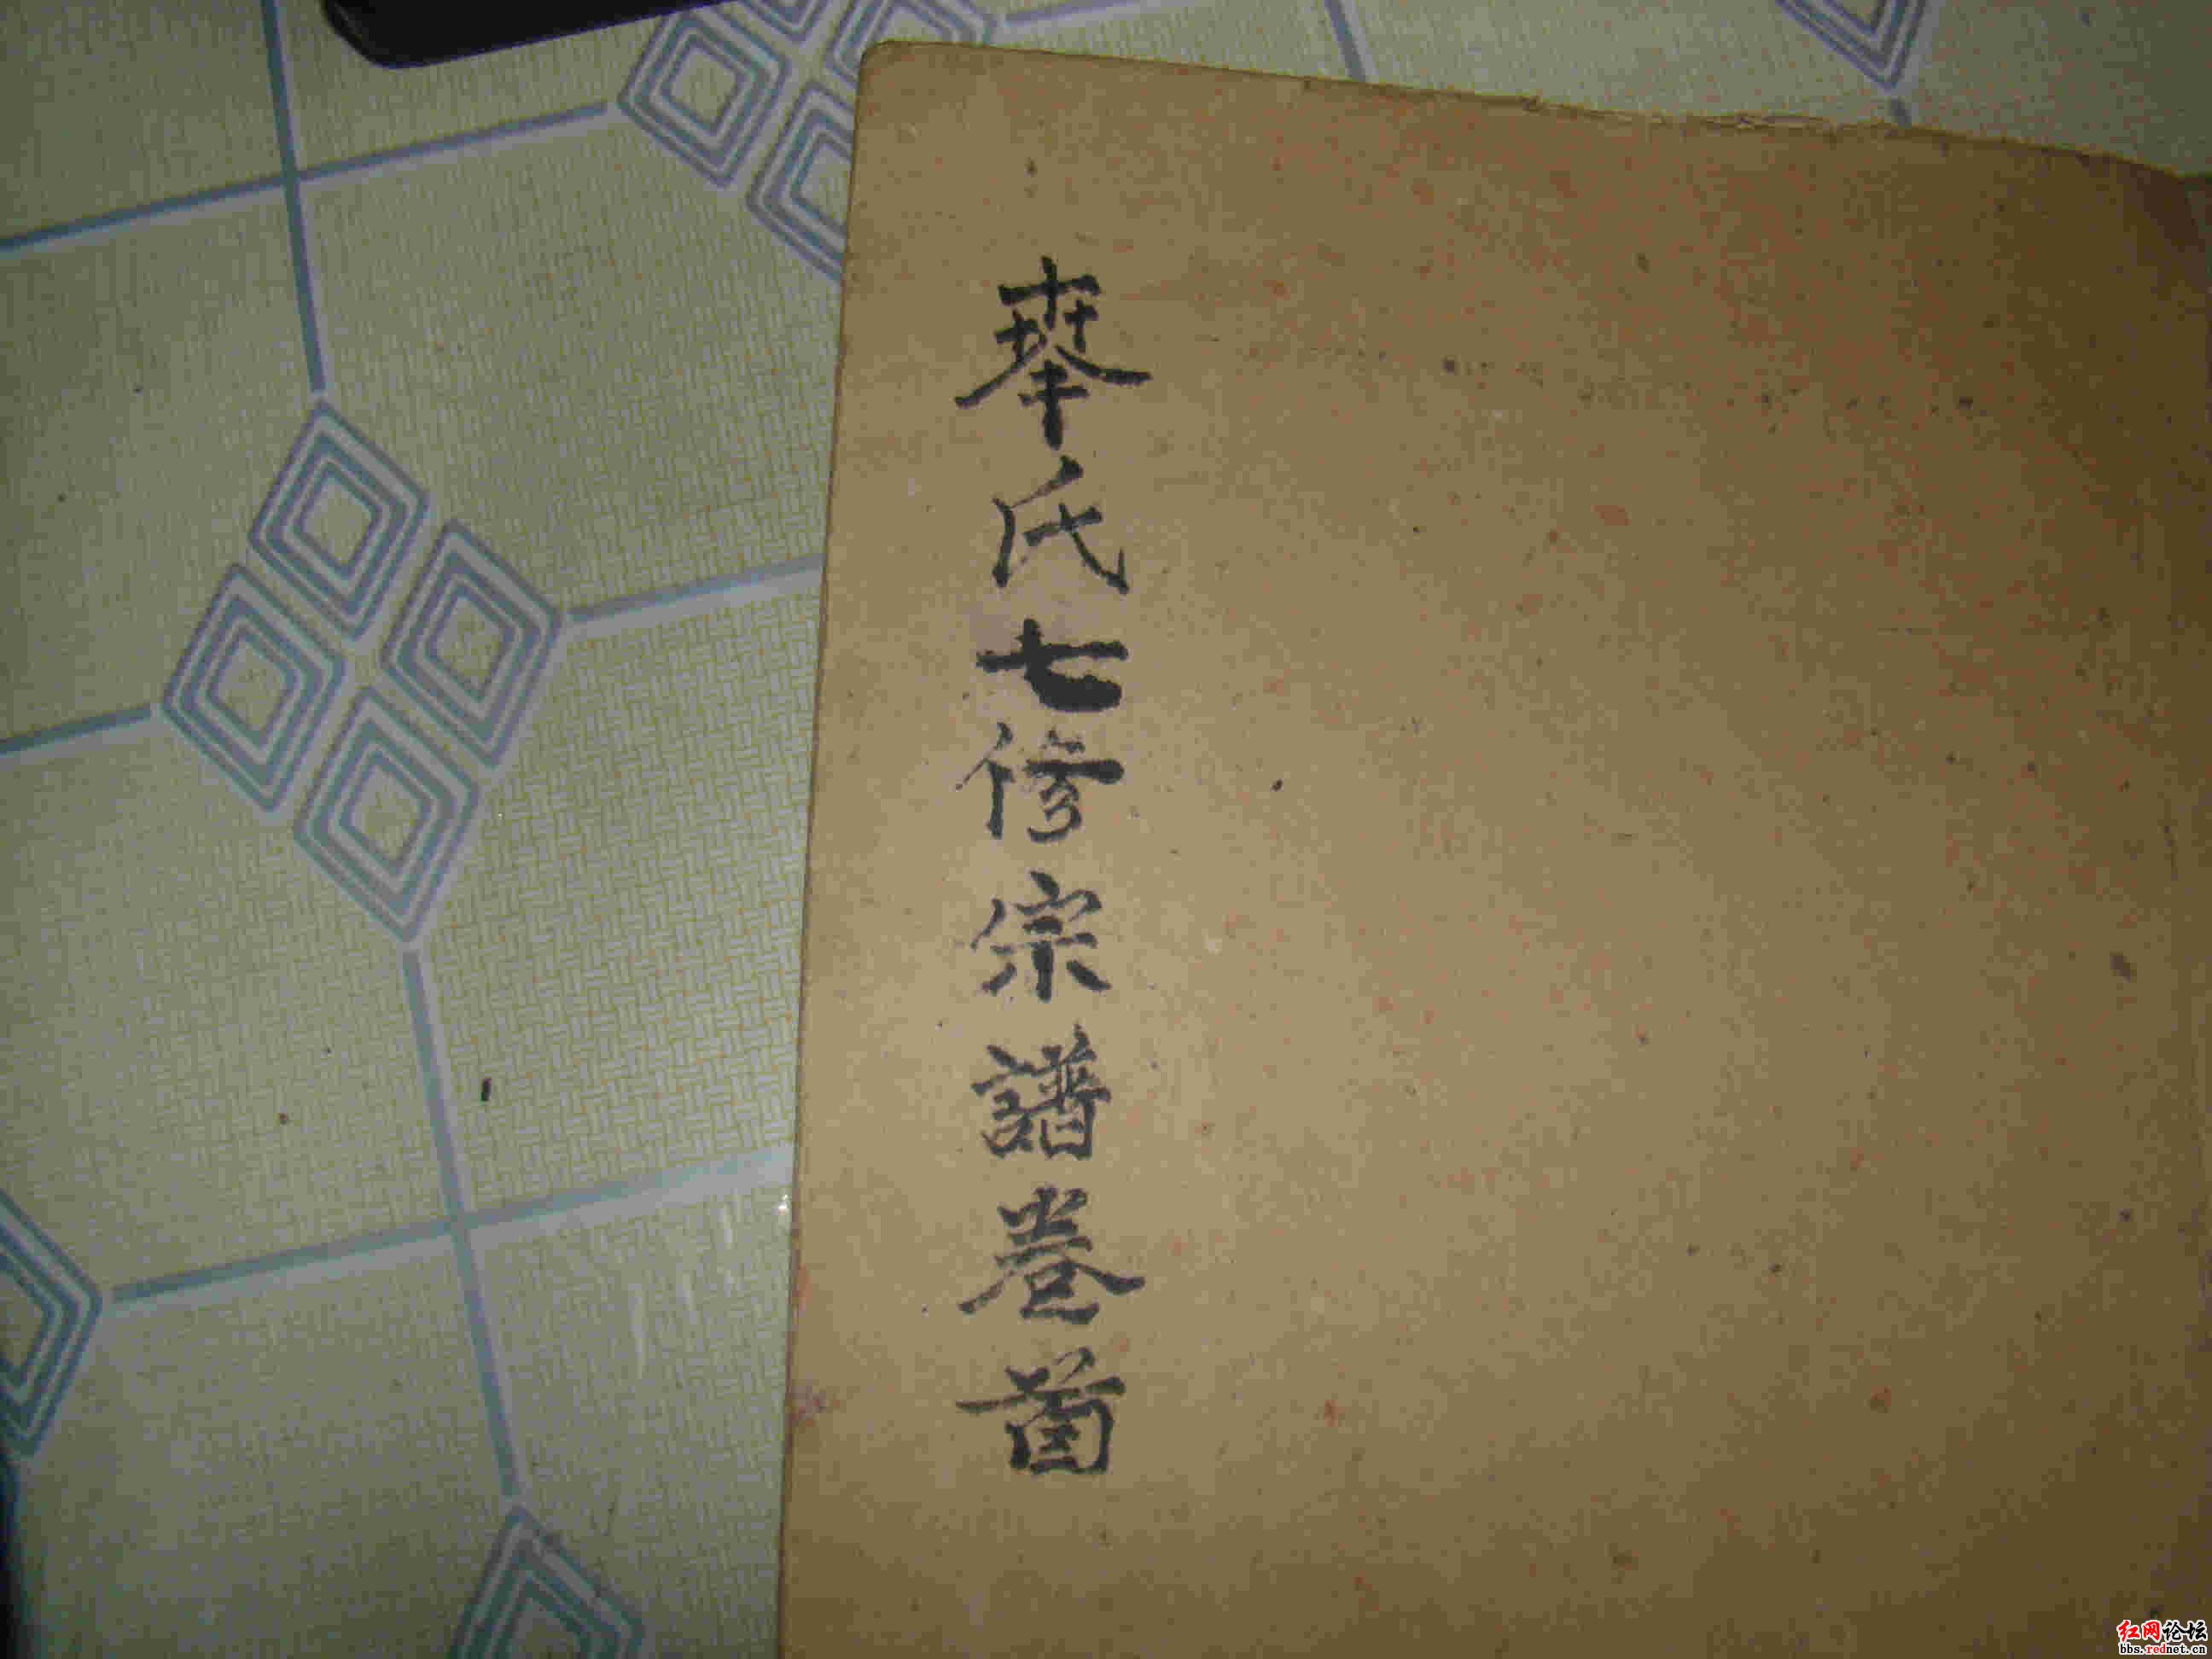 氏七修宗譜卷首
红网论坛
bbs.rednet.cn